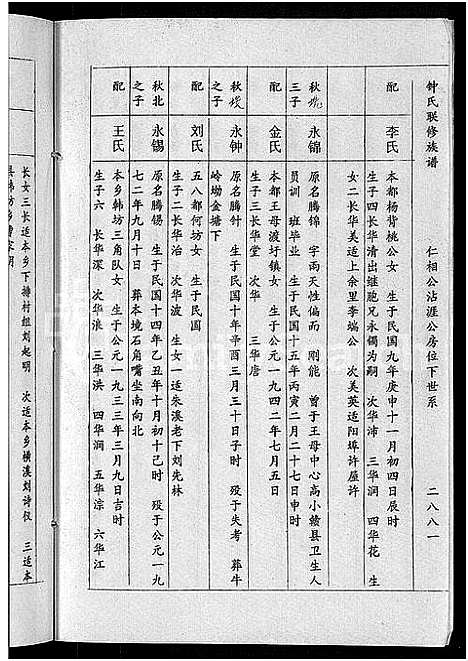 钟氏联修族谱
仁相公沾涯公房位下世系
二八八一
配
李氏
本都杨背桃公女 生于民国九年庚申十一月初四日辰时
生子四长华清出继胞兄永镯为嗣 次华沛 三华润 四华花 生
女二长华美适上余里李端公 次美英适阳埠许屋许
秋
三子
永锦
原名腾锦 字雨天性偏而 刚能 曾于王母中心高小赣县卫生人
员训 班毕业 生于民国十五年丙寅二月二十七日申时
配
金氏
本都王母渡圩镇女 生于公元一九四二年七月五日
生子三长华堂 次华兰 三华唐
秋
之子
永钟
原名腾针 生于民国十年辛酉三月三十日子时 殁于失考 葬牛
岭坳金塘下
配
刘氏
五八都何坊女 生于民国
生子二长华治 次华波 生女一适朱溪老下刘先林
秋北
之子
永锡
原名腾锡 生于民国十四年乙丑年十月初十己时 殁于公元一九
七二年九月十日 葬本境石角嘴坐南向北
配
王氏
本乡韩坊三角队女 生于公元一九三三年三月九日吉时
生子六 长华深 次华浪 三华洪 四华涧 五华淙 六华江
长女三长适本乡下搪村组刘起明 次适本乡横溪刘诗仪 三适本